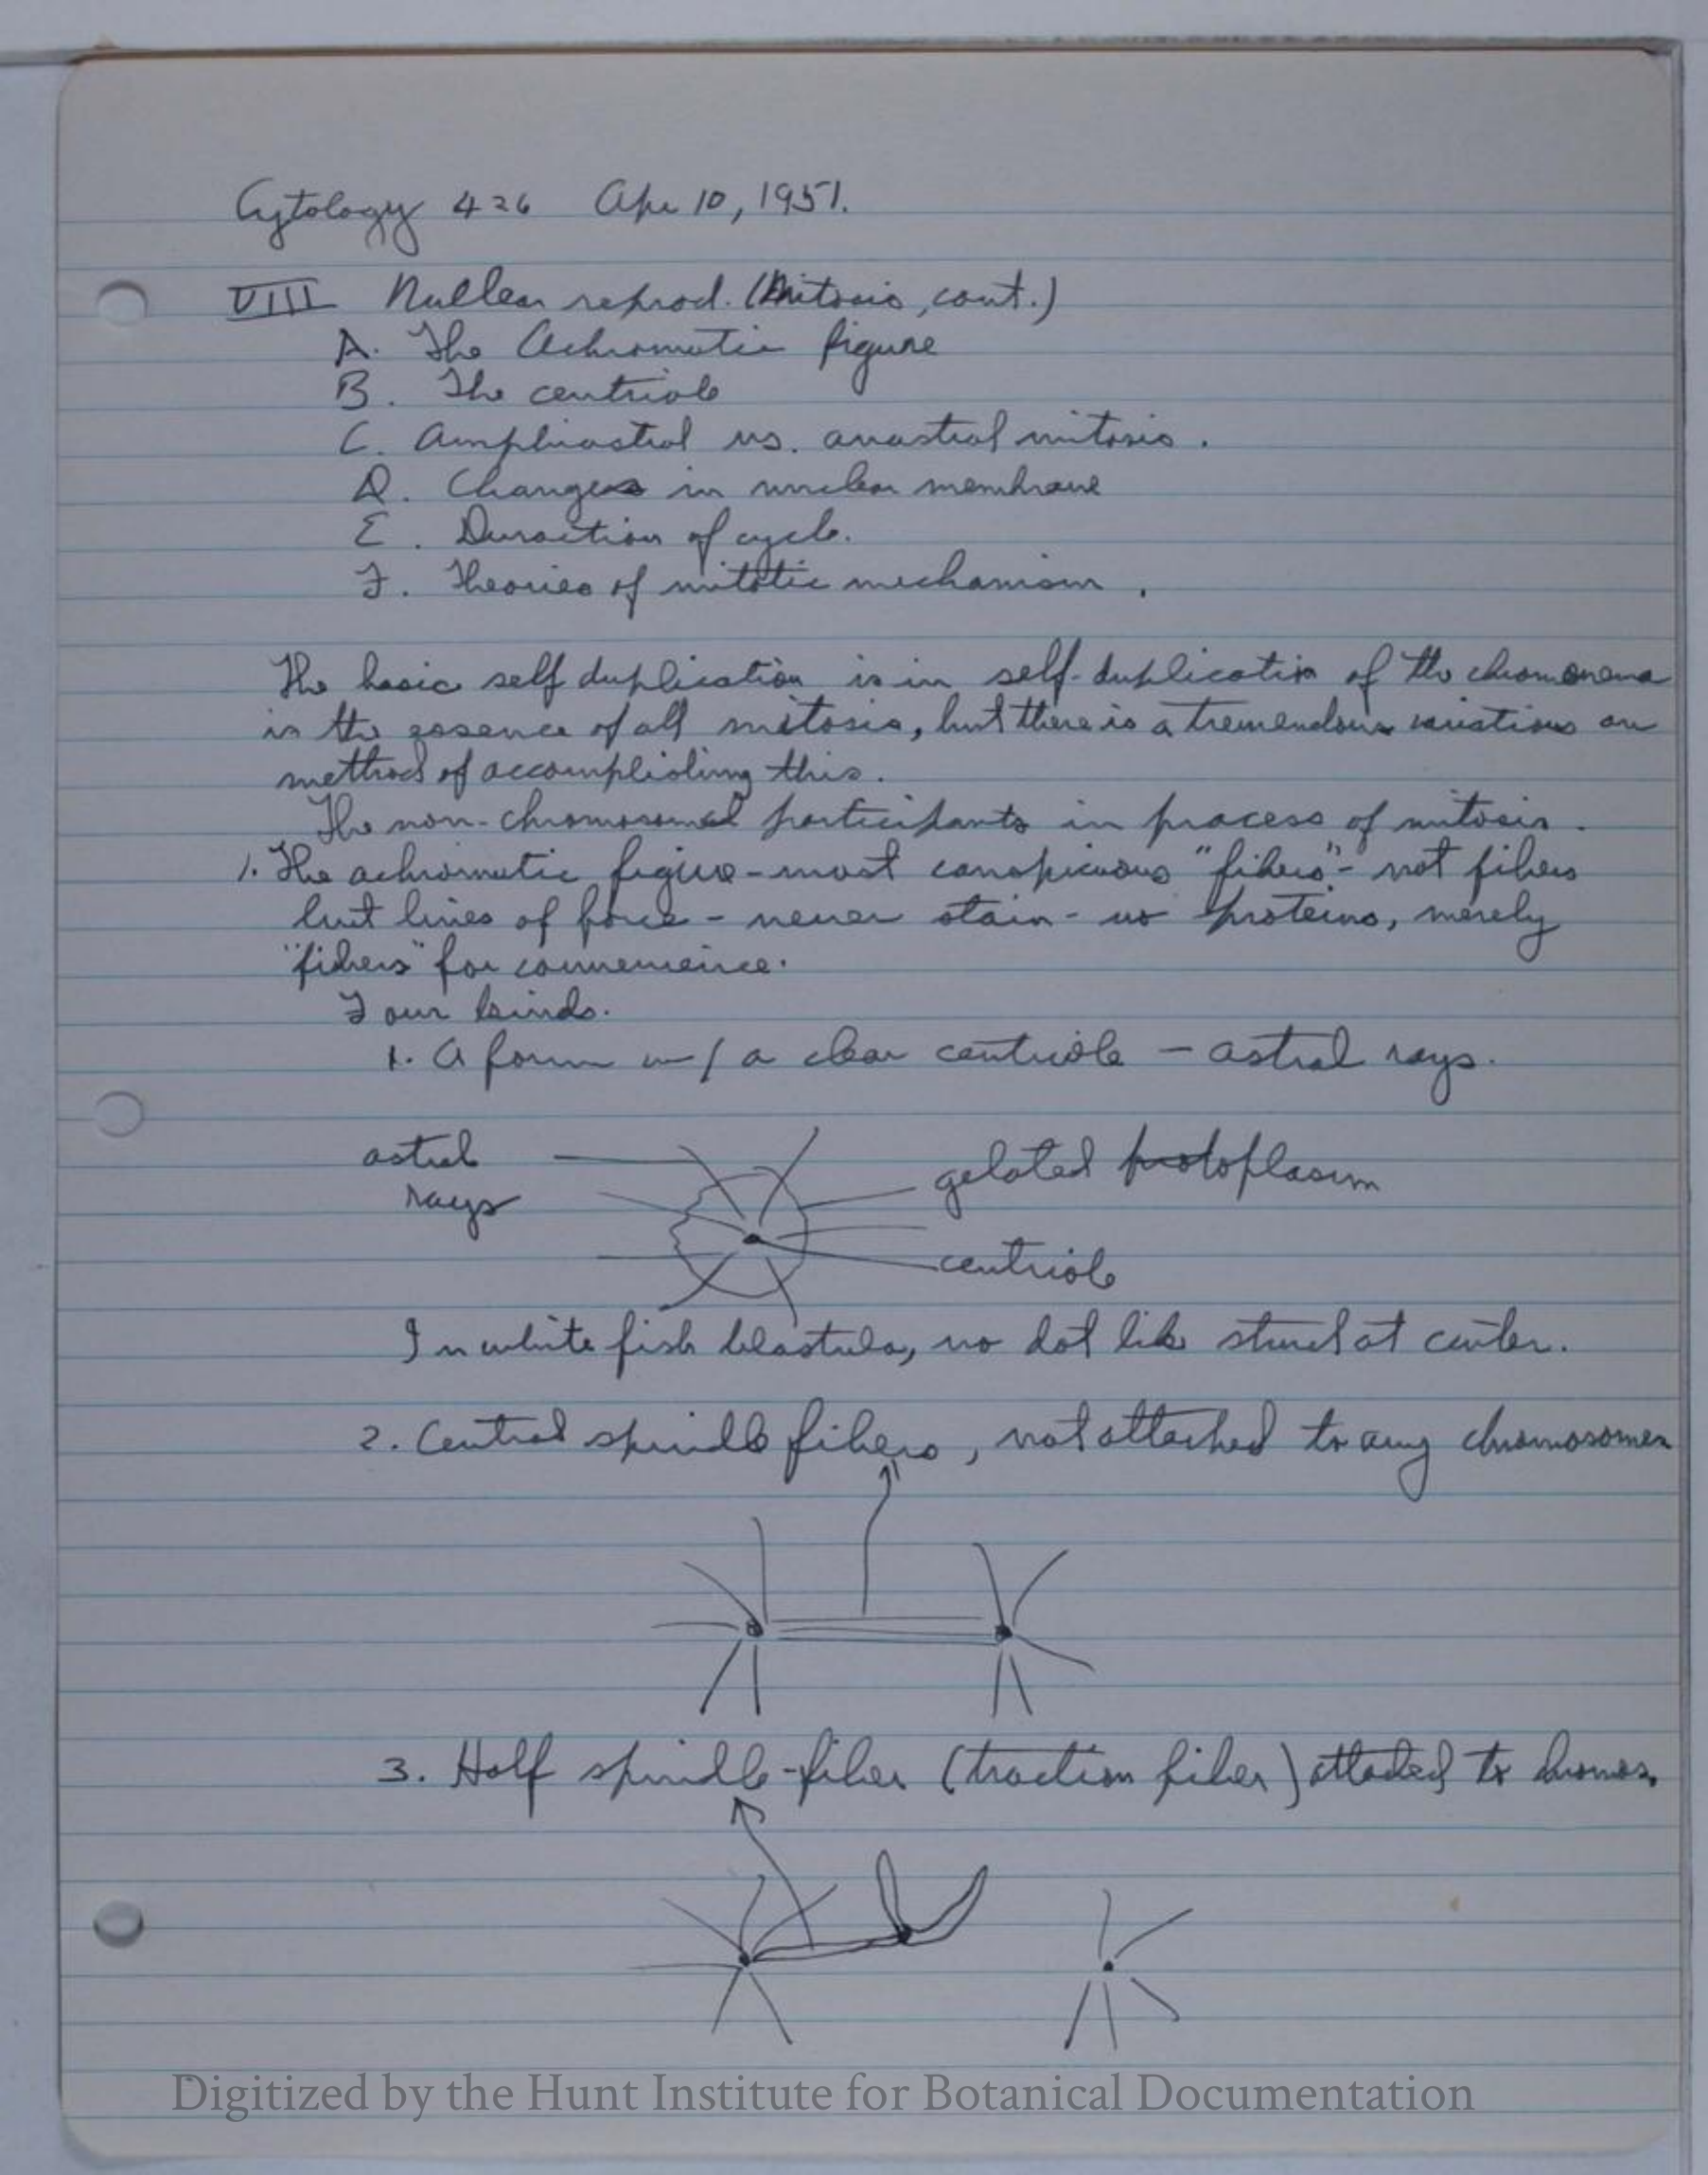 Cytology 426 Apr 10, 1951.
VIII Nuclear reprod. (Mitosis, cont.)
A. The Achromatic figure
B. The centriole
C. Amphiastral vs. anastral mitosis.
D. Changes in nuclear membrane
E. Duraction of cycle.
F. Theories of mitotic mechanism.
The basic self duplication is in self-duplication of the chromonema
is the essence of all mitosis, but there is a tremendous variations on
method of accomplishing this.
The non-chromosomal participants in process of mitosis.
1. The achromatic figure - most conspicuous "fibers" - not fibers
but lines of force - never stain - no proteins, merely
"fibers" for convenience.
Four kinds.
1. A form w/ a clear centriole - astral rays.
astral
rays
gelated protoplasm
centriole
In white fish blastula, no dot like struct at center.
2. Central spindle fibers, not attached to any chromosomes
3. Half spindle-fiber (traction fiber) attached to chromos.
Digitized by the Hunt Institute for Botanical Documentation